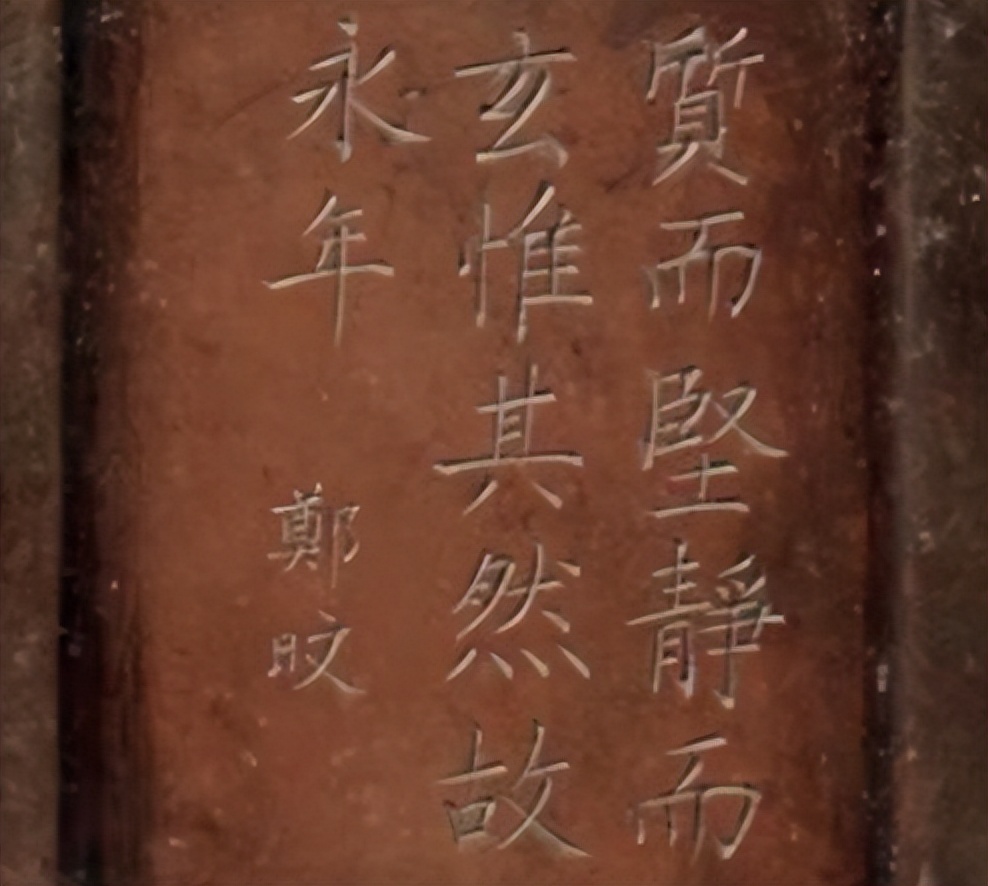 質而堅靜而
玄惟其然故
永年
鄭旼